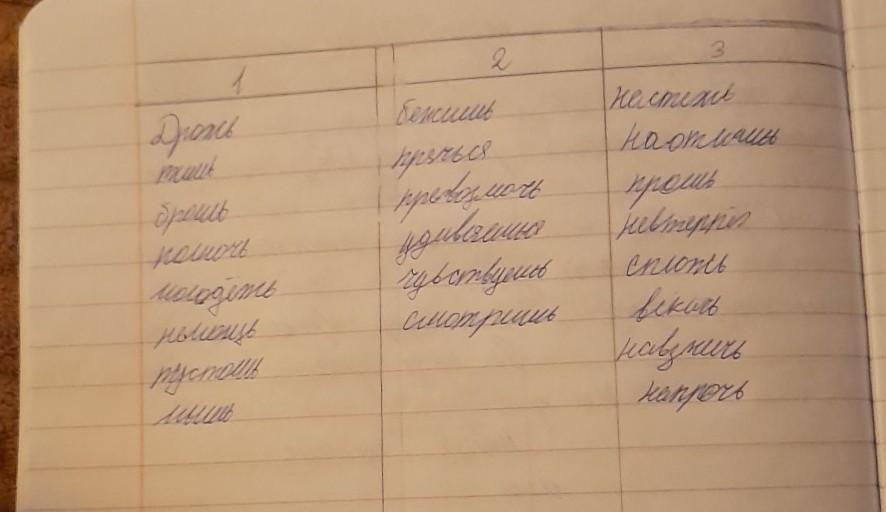 1 2 3
Дрожь бежишь настежь
тишь прячься наотмашь
брошь превозмочь прочь
помочь удивляешься невтерпёж
молодёжь чувствуешь сплошь
немощь смотришь вскачь
пустошь навзничь
мышь напрочь